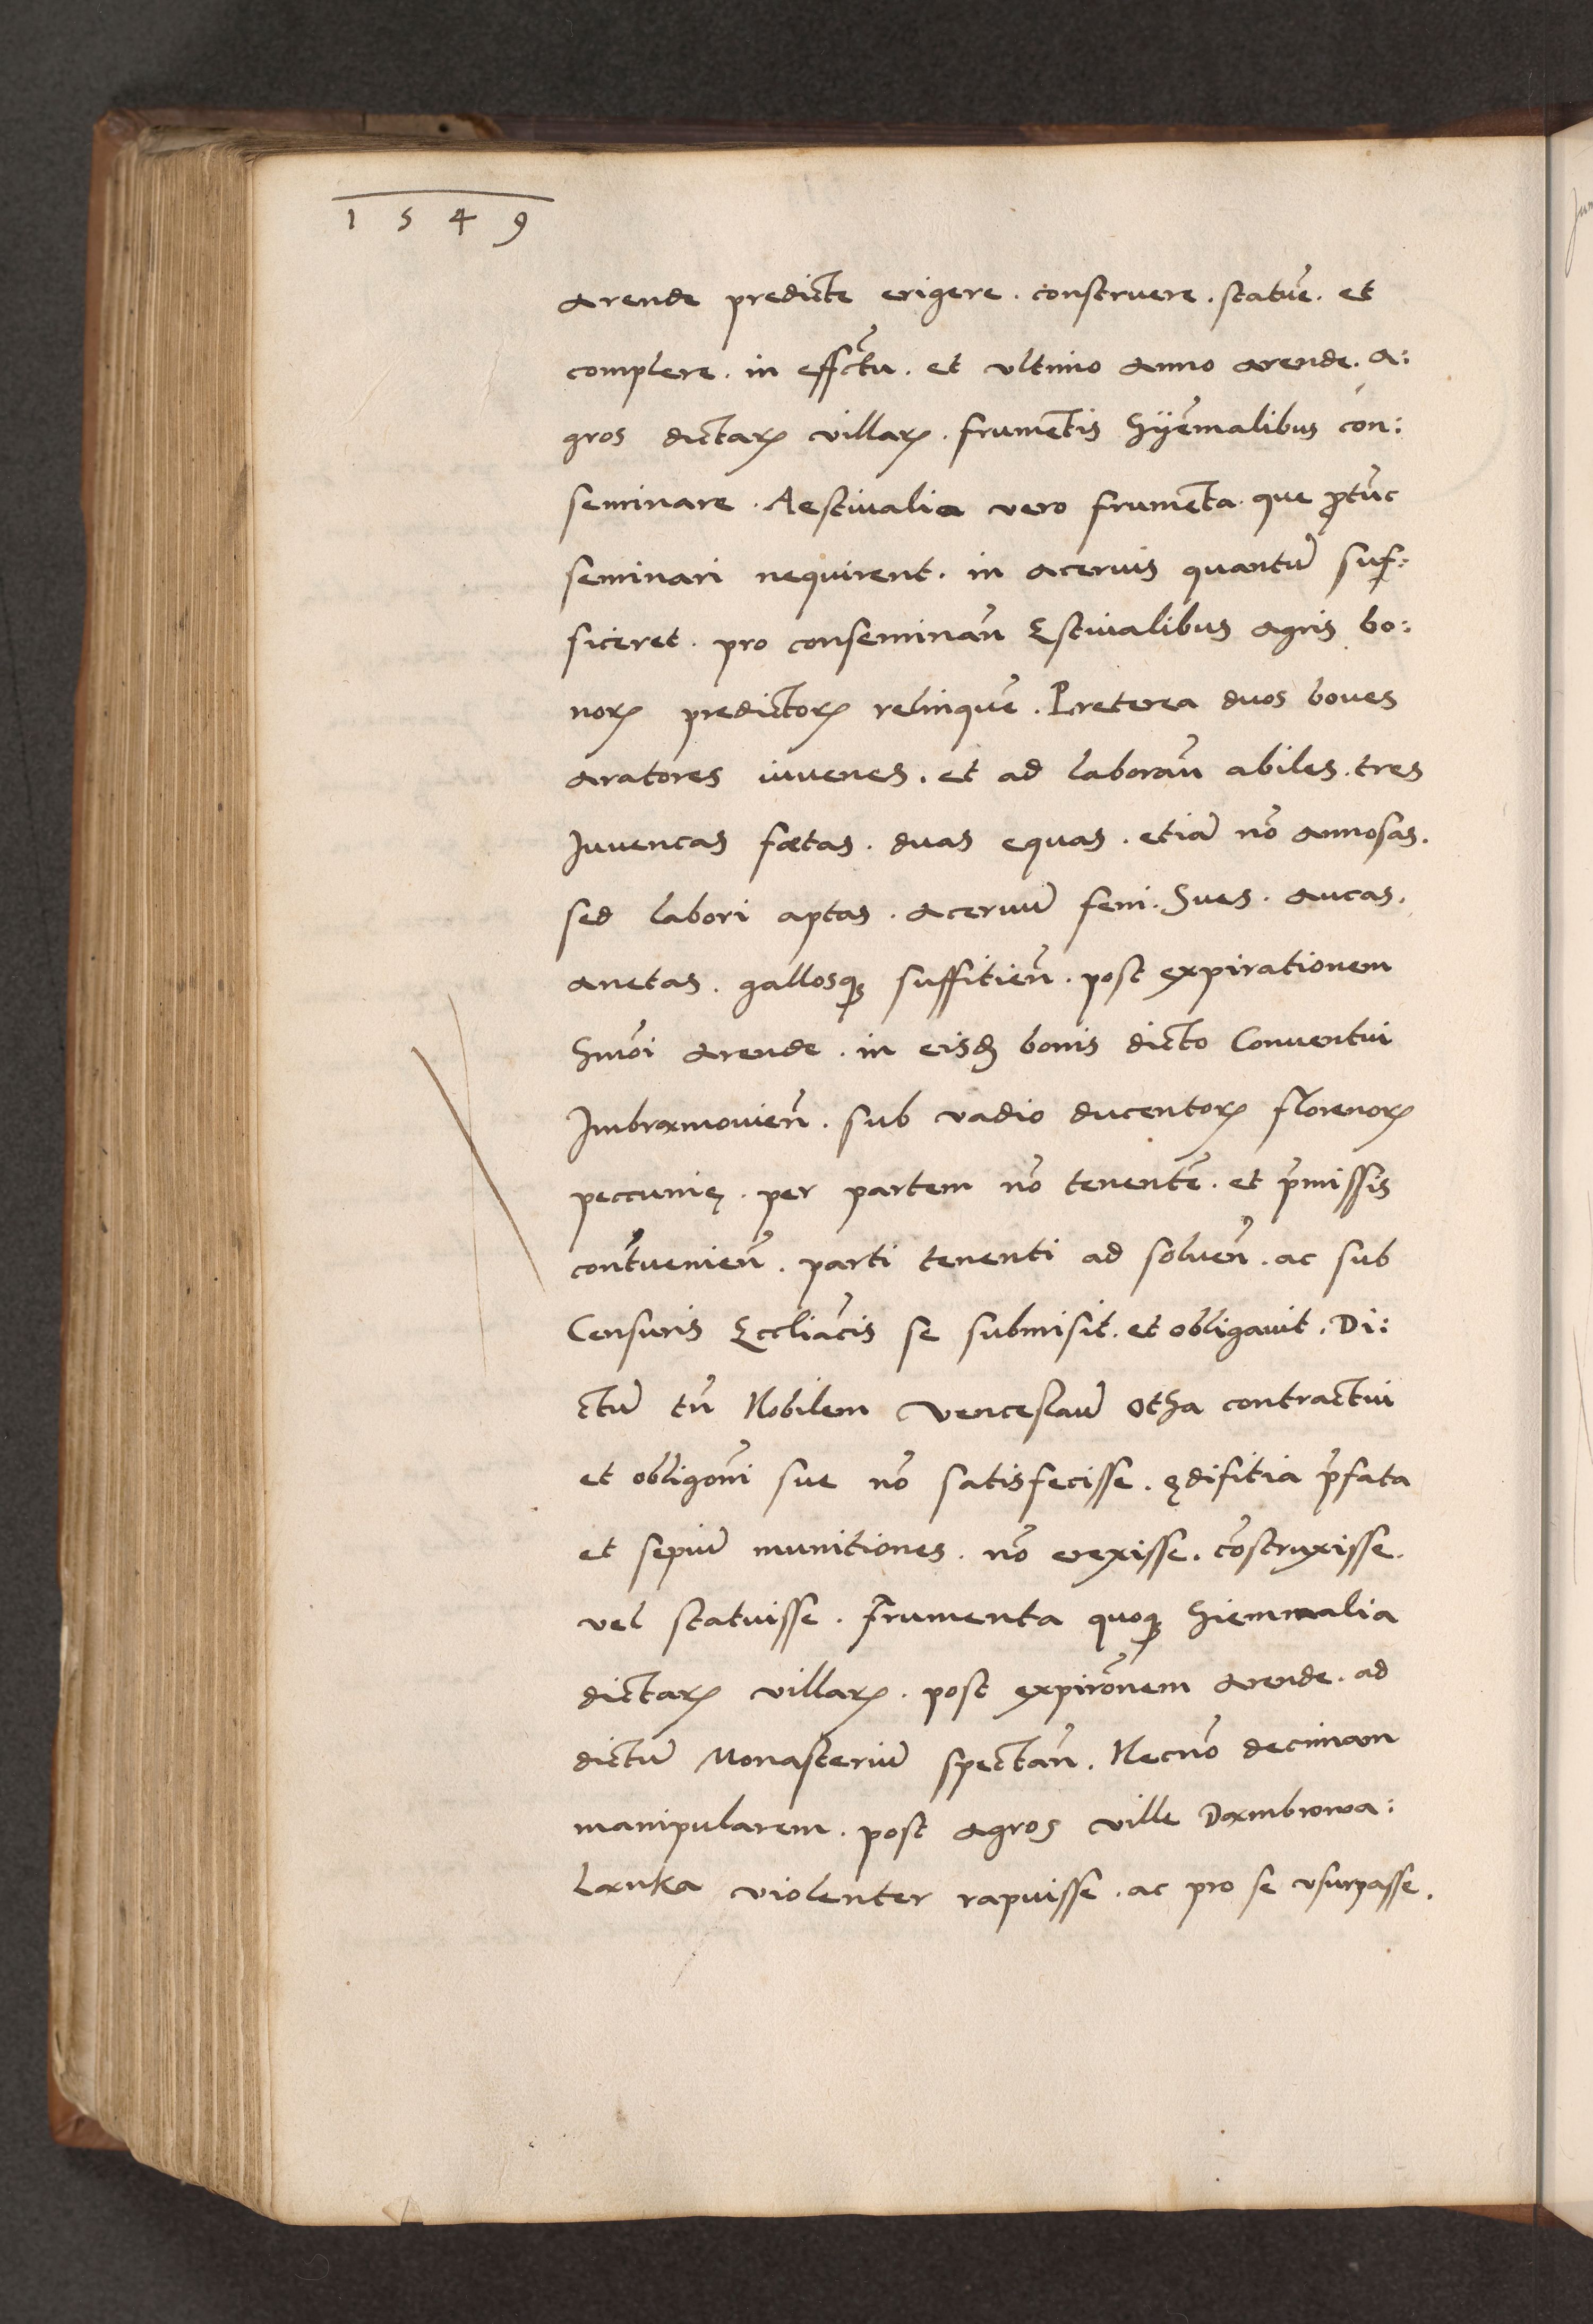 1549
arende predicte erigere. construere. statue͂. et
complere. in effc͂tu. et vltimo anno arende. a:
gros dictaꝝ villaꝝ. frume͂tis hÿe͂malibus con:
seminare. Aestiualia vero frume͂ta. que ꝓtu͂c
seminari nequirent. in aceruis quantu͂ suf:
ficeret. pro conseminan͂ Estiualibus agris bo:
noꝝ predictoꝝ relinque͂. Preterea duos boues
aratores iuuenes. et ad laboran͂ abiles. tres
Iuuencas fœtas. duas equas. etia͂ no͂ annosas.
sed labori aptas. aceruu͂ feni. Sues. aucas.
anetas. gallosqꝫ suffitien͂. post expirationem
hmo͂i arende. in eisdꝫ bonis dicto Conuentui
Imbramouien͂. sub vadio ducentoꝝ florenoꝝ
peccunię. per partem no͂ tenente͂. et p͂missis
cont͂uenien͂. parti tenenti ad soluen͂. ac sub
Censuris Eccl͂iacis se submisit. et obligauit. Di:
ctu͂ tn͂ Nobilem Venceslau͂ Otha contractui
et obligo͂ni sue no͂ satisfecisse. ędifitia p͂fata
et sepiu͂ munitiones. no͂ erexisse. co͂struxisse.
vel statuisse. Frumenta quoqꝫ hiemmalia
dictaꝝ villaꝝ. post expiro͂nem arende. ad
dictu͂ Monasteriu͂ spectan͂. Necno͂ decimam
manipularem. post agros ville Dambrowa:
Lanka violenter rapuisse. ac pro se vsurpasse.